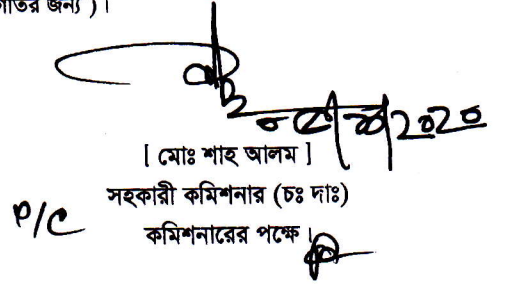 র জন্য ) ।
২০২০
[ মোঃ শাহ আলম ]
সহকারী কমিশনার (চঃ দাঃ)
P/C
কমিশনারের পক্ষে ।